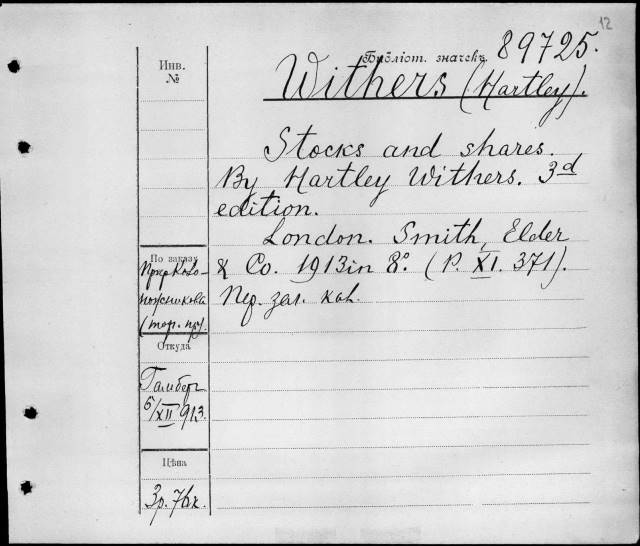 12
Библіот. значекъ 89725.
Withers (Hartley).
Инв.
№
Stocks and shares.
By Hartley Withers. 3d
edition.
London. Smith, Elder
& Co. 1913 in 8°. (P. XI. 371).
Пер. зал. кан.
По заказу
(тор. пр.).
Откуда
Гамберг
5/XII 913.
Цѣна
3р. 76к.